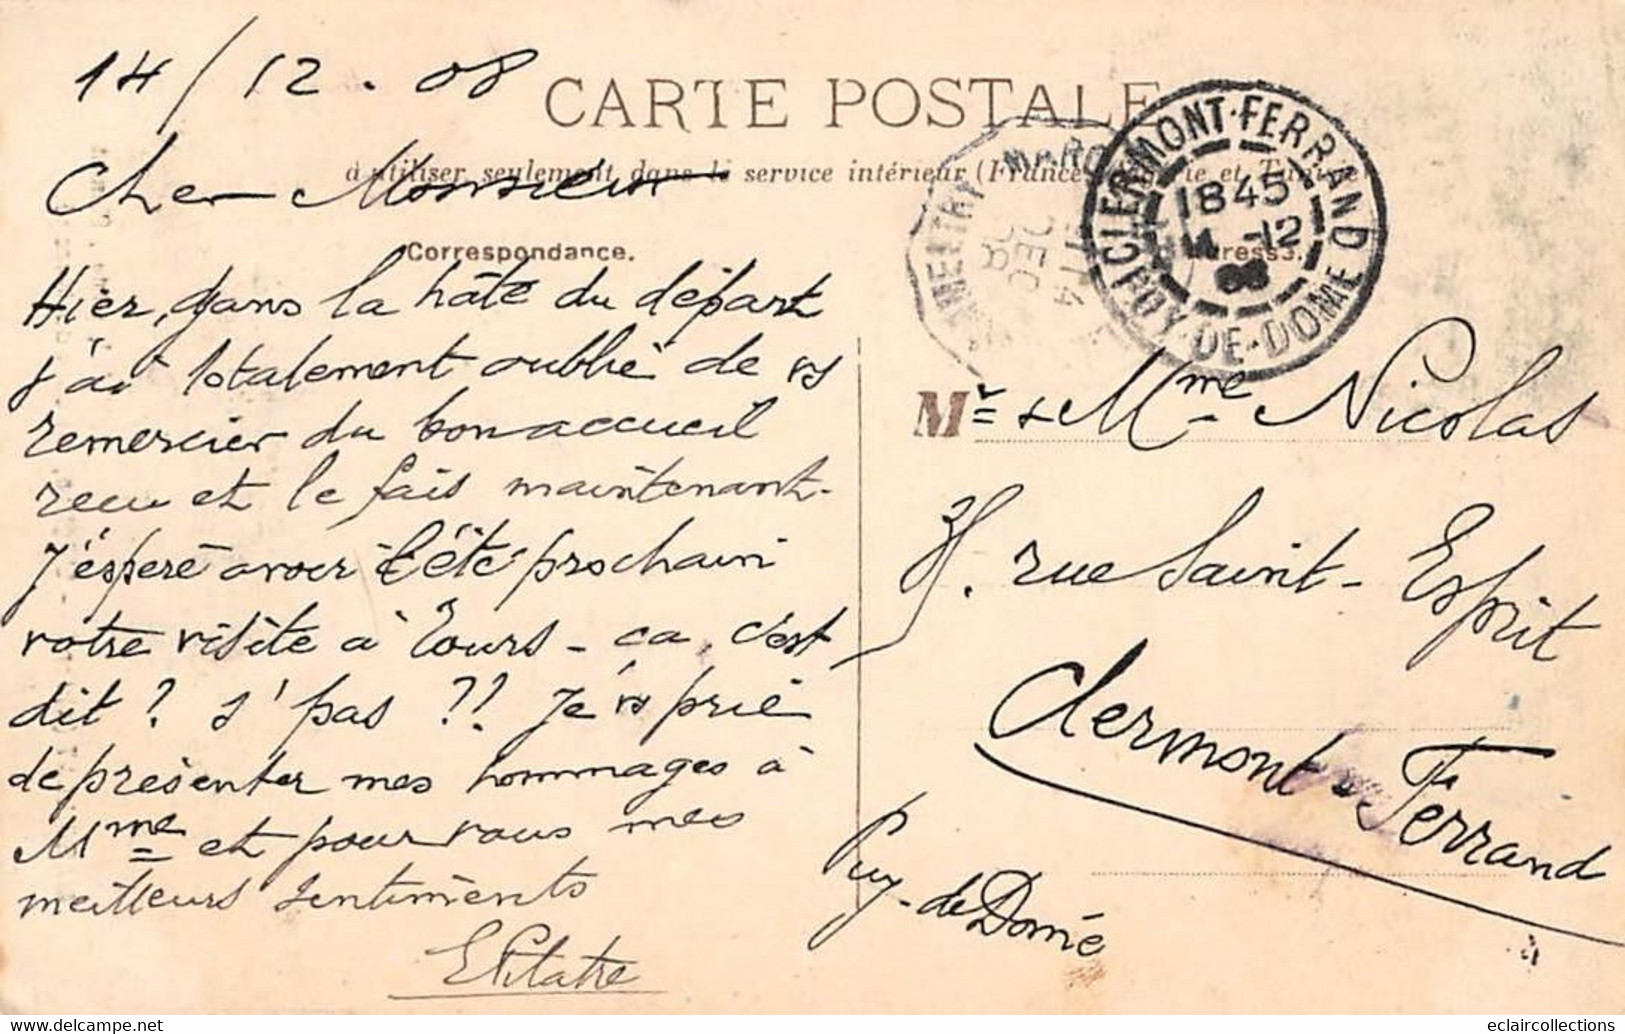 14/12.08
CARTE POSTALE
à utiliser seulement dans le service intérieur (France et Tunisie
Cher Monsieur
Correspondance.
Hier, dans la hâte du départ
j'ai totalement oublié de vs
remercier du bon accueil
recu et le fais maintenant.
J'éspère avoir l'été prochain
votre visite à Tours - ca, c'est
dit ? s' pas ?? Je vs prie
de présenter mes hommages à
Mme et pour vous mes
meilleurs sentiments
EPilatre
MARC
14
DEC
08
CLERMONT-FERRAND
1845
14 -12
08
PUY-DE-DOME
Mr & Mme Nicolas
rue Saint-Esprit
Clermont-Ferrand
Puy-de-Dôme
eclaircollections